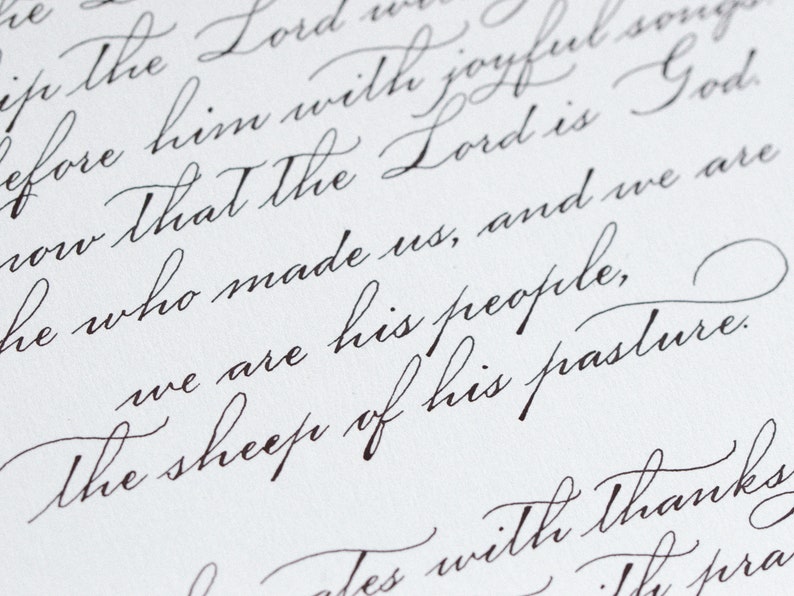 the
the Lord
before him with joyful songs.
now that the Lord is God.
he who made us, and we are
we are his people,
the sheep of his pasture.
ates with thanks
ith pra